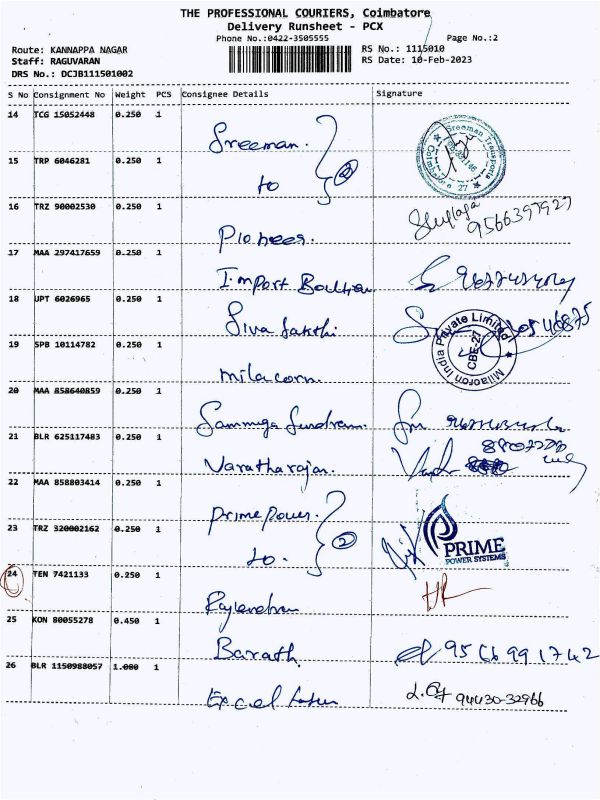 THE PROFESSIONAL COURIERS, Coimbatore
Delivery Runsheet - PCX
Phone No.:0422-3505555
Page No.:2
Route: KANNAPPA NAGAR
RS No.: 1115010
Staff: RAGUVARAN
RS Date: 10-Feb-2023
DRS No.: DCJB111501002
S No Consignment No Weight PCS Consignee Details Signature
14 TCG 15052448 0.250 1
Sreeman.
Sreeman Transports
Coimbatore 27
15 TRP 6046281 0.250 1
to
2
16 TRZ 90002530 0.250 1
Pioneer.
9566397927
17 MAA 297417659 0.250 1
Import
18 UPT 6026965 0.250 1
Siva Sakthi
19 SPB 10114782 0.250 1
milacorn.
Milacron India Private Limited
CBE-27
20 MAA 858640859 0.250 1
21 BLR 625117483 0.250 1
Varatharajan.
22 MAA 858803414 0.250 1
prime power.
23 TRZ 320002162 0.250 1
to.
2
PRIME
POWER SYSTEMS
24 TEN 7421133 0.250 1
Rajendran
25 KON 80055278 0.450 1
Barath
26 BLR 1150988057 1.080 1
Excel
94430-32966